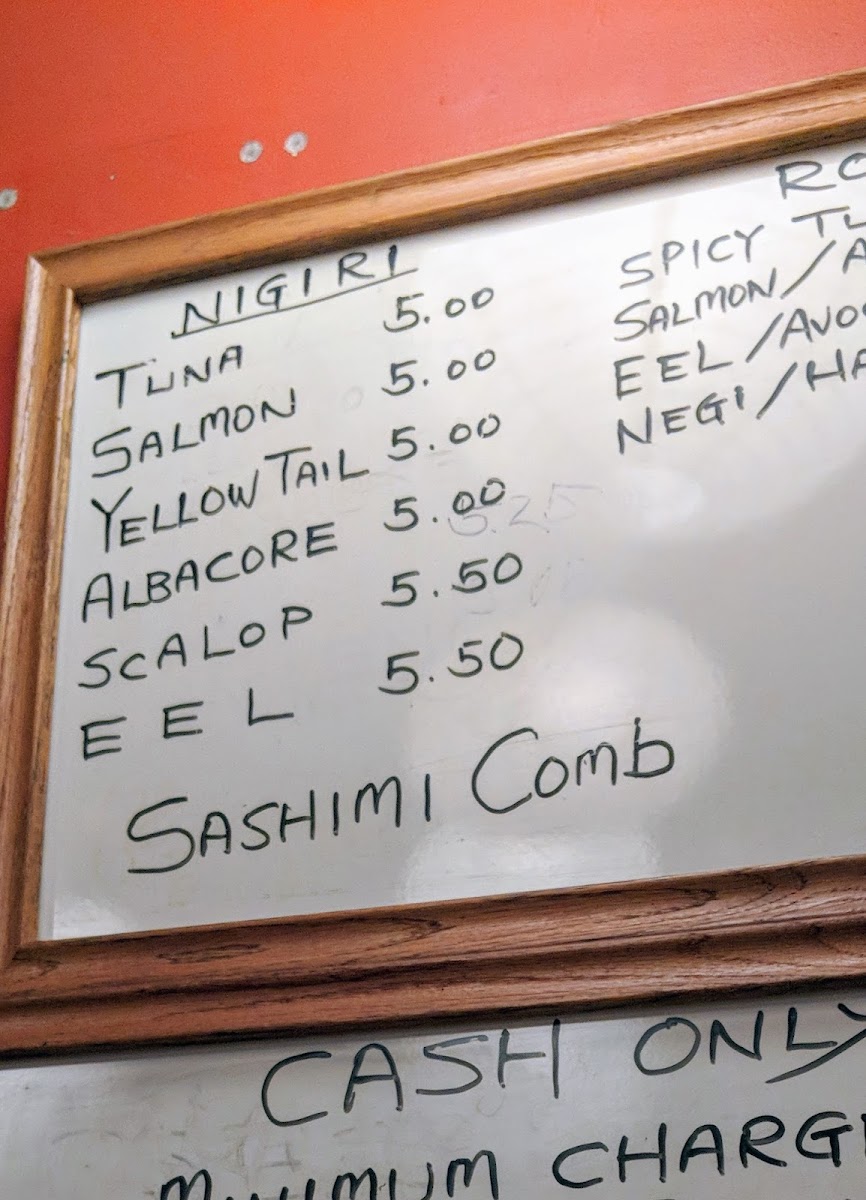 NIGIRI
TUNA 5.00
SALMON 5.00
YELLOW TAIL 5.00
ALBACORE 5.00
SCALOP 5.50
EEL 5.50
SASHIMI COMB
SPICY
SALMON/
EEL/
NEGI/
CASH ONLY
MINIMUM